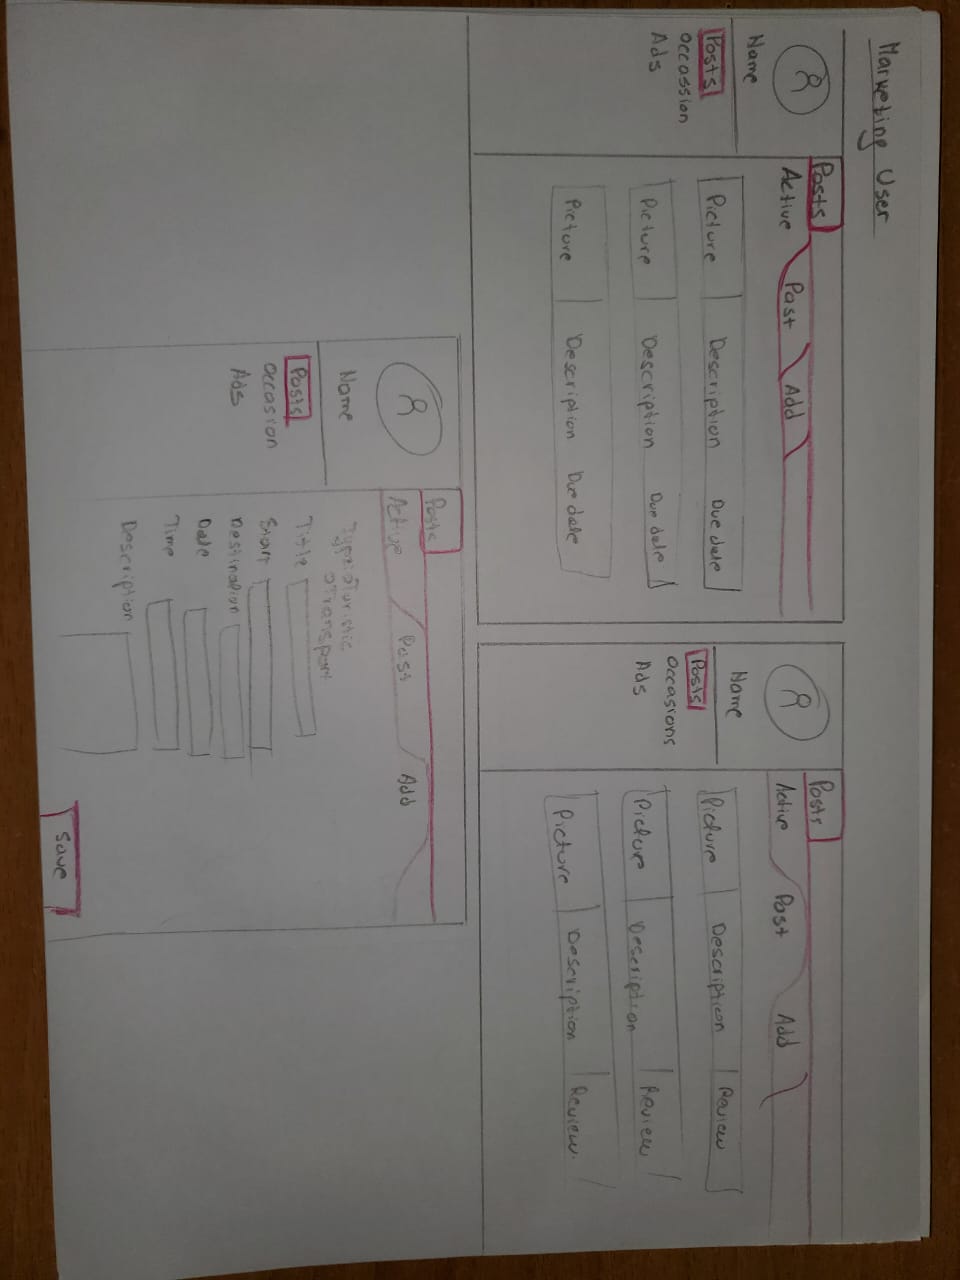 Marketing User
Name
Posts
occassion
Ads
Posts
Active Past Add
Picture Description Due date
Picture Description Due date
Picture Description Due date
Name
Posts
Occasions
Ads
Posts
Active Past Add
Picture Description Review
Picture Description Review
Picture Description Review
Name
Posts
occasion
Ads
Posts
Active Past Add
Type: Turistic
Transport
Title
Start
Destination
Date
Time
Description
Save